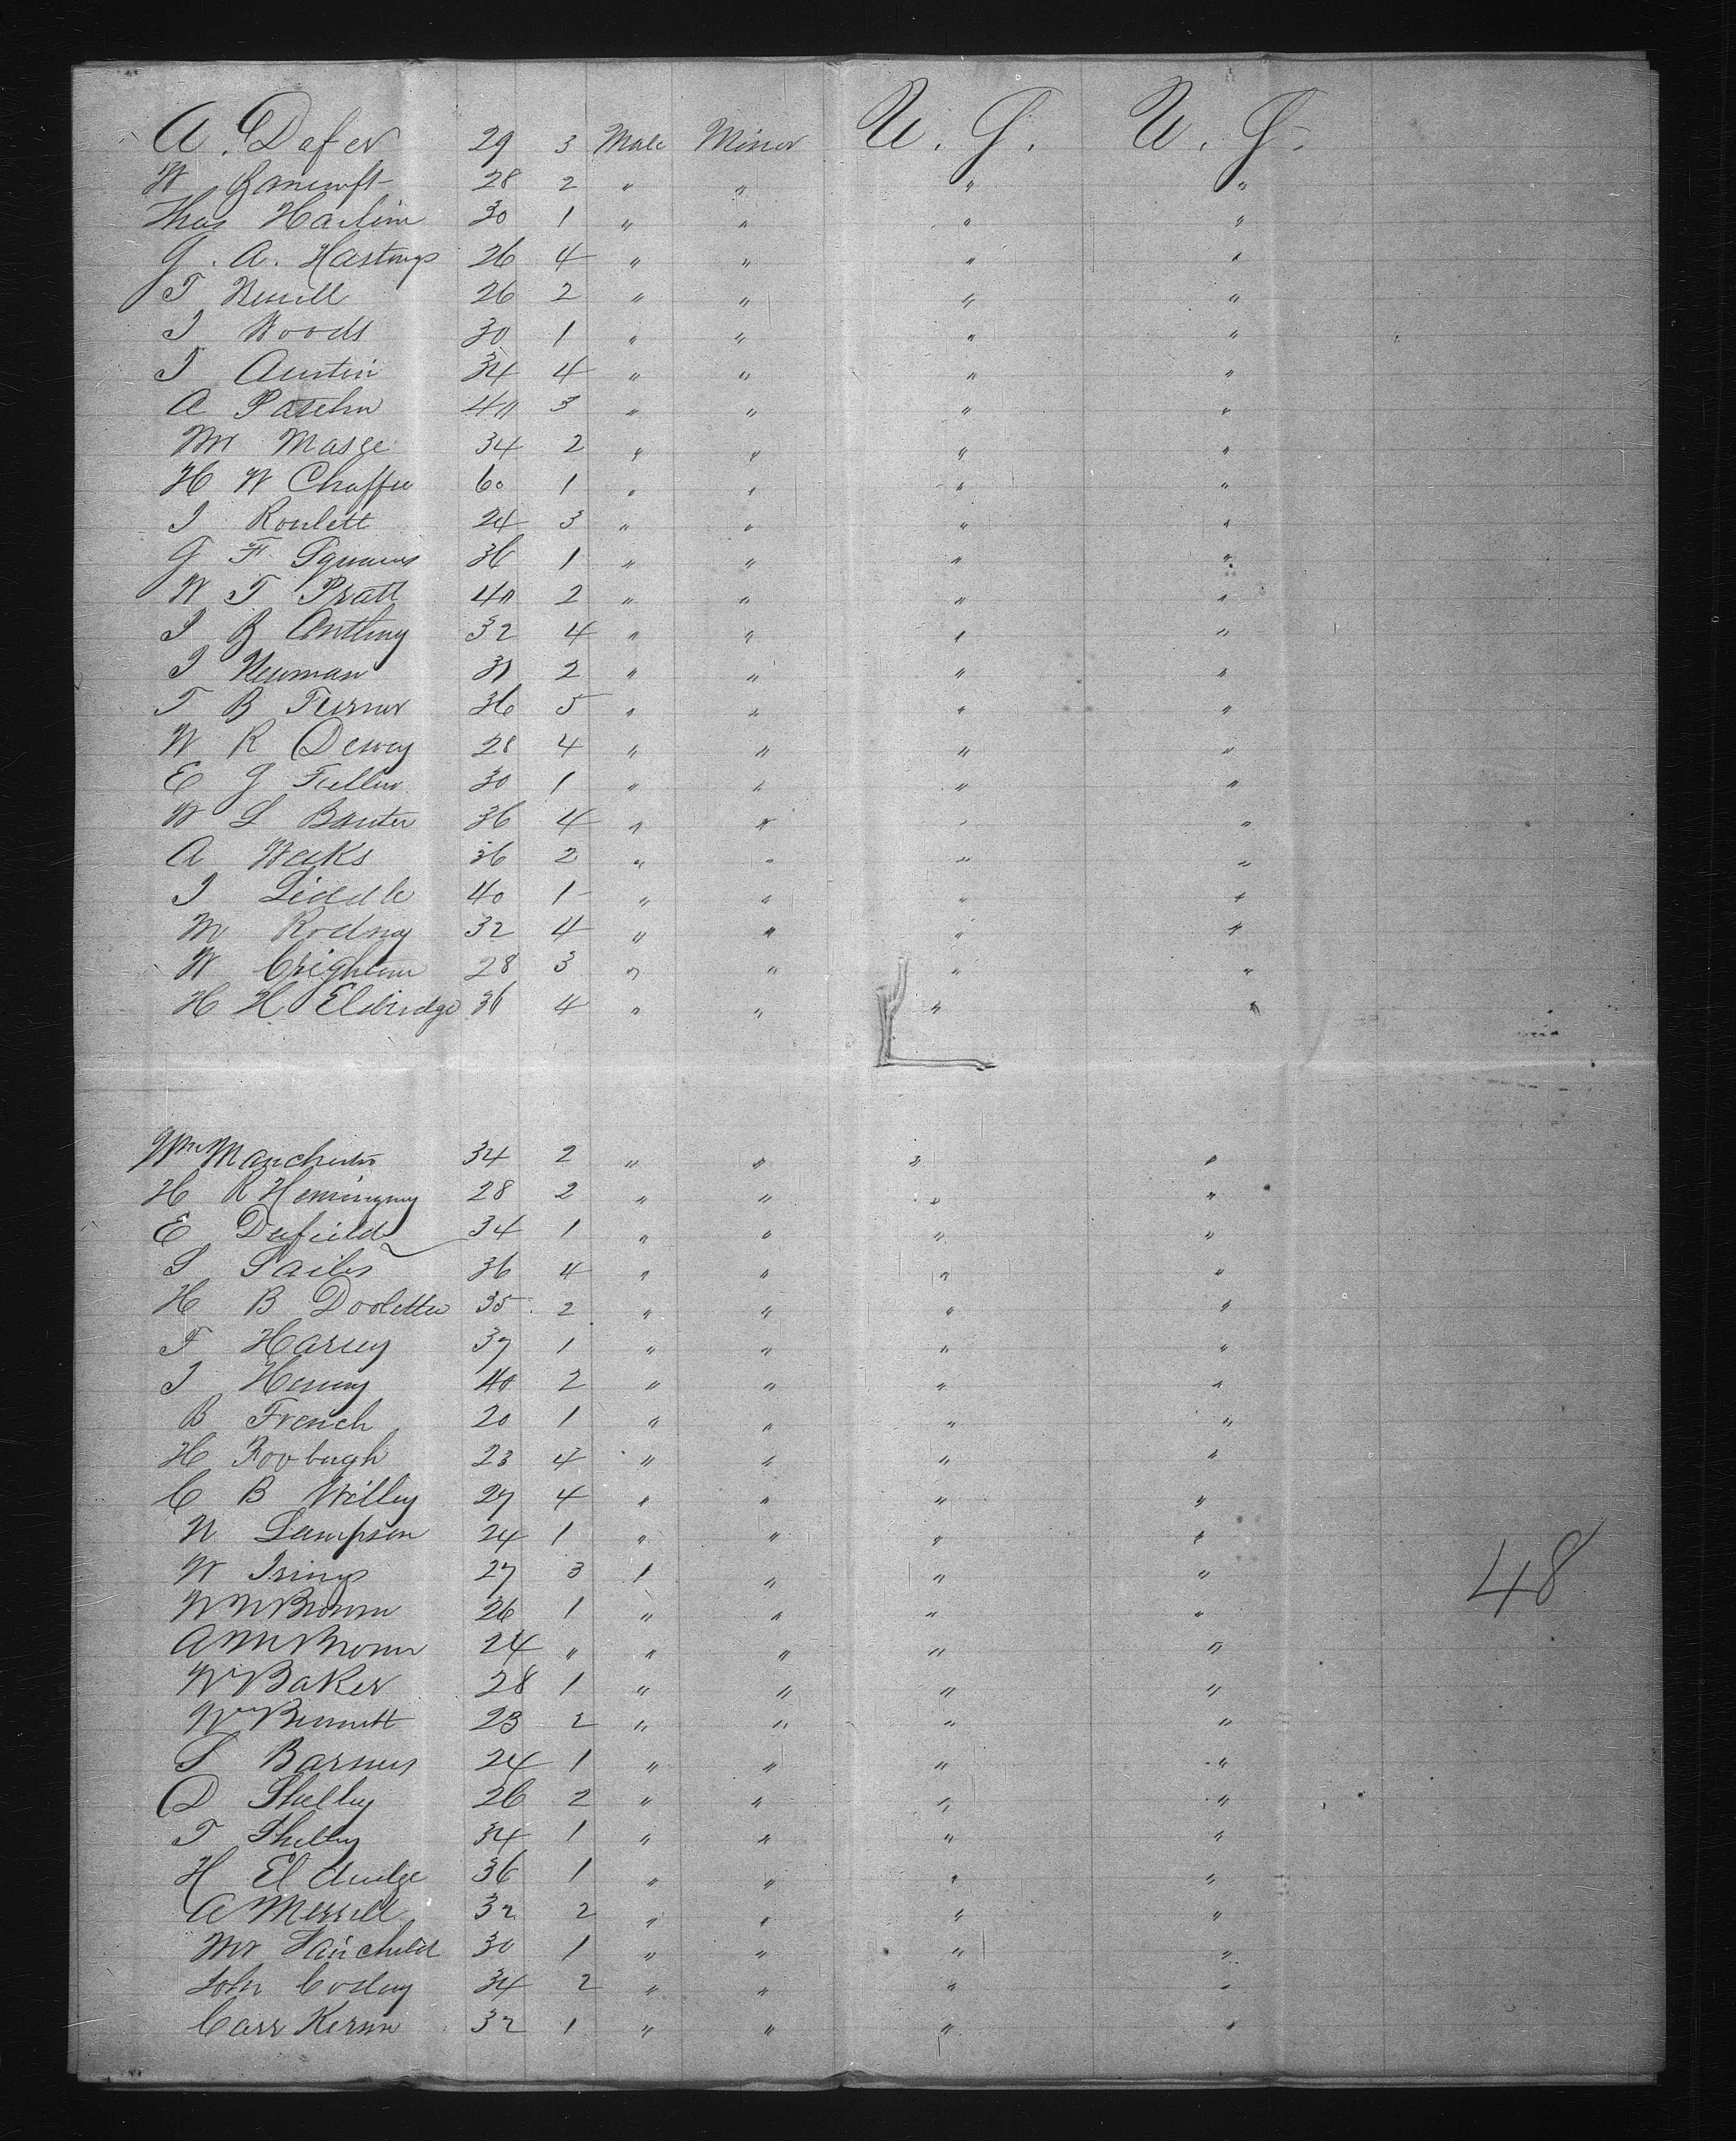 A. Dafer 29 3 Male Minor U. S. U. S.
W Bancroft 28 2 " " " "
Thos Harlim 30 1 " " " "
G. A. Hastings 26 4 " " " "
T 26 2 " " " "
J Woods 30 1 " " " "
J Austin 34 4 " " " "
A 40 3 " " " "
Mr Masge 34 2 " " " "
H W Chaffee 60 1 " " " "
J Roulett 24 3 " " " "
G F Squares 36 1 " " " "
W T Pratt 40 2 " " " "
J B Anthony 32 4 " " " "
J Newman 31 2 " " " "
T B Turner 36 5 " " " "
W R Dewey 28 4 " " " "
E G Fuller 30 1 " " " "
W S 36 4 " " " "
A Weeks 36 2 " " " "
J Liddle 40 1 " " " "
M Rodney 32 4 " " " "
W Crighton 28 3 " " " "
H H Eldridge 36 4 " " " "
Wm Manchester 34 2 " " " "
H R Hemingway 28 2 " " " "
E Dufield 34 1 " " " "
S Sailes 36 4 " " " "
H B Doolettee 35 2 " " " "
F Harvey 37 1 " " " "
J 40 2 " " " "
B French 20 1 " " " "
H 23 4 " " " "
C B Willey 27 4 " " " "
N Sampson 24 1 " " " "
W 27 3 1 " " "
W W Brown 26 1 " " " "
A M Brown 24 " " " " "
Wm Baker 28 1 " " " "
Wm Bennett 23 2 " " " "
S Barnes 24 1 " " " "
D Shelley 26 2 " " " "
T Shelley 34 1 " " " "
H Eldridge 36 1 " " " "
A Merrill 32 2 " " " "
Mr Fairchild 30 1 " " " "
John Codey 34 2 " " " "
Carr 32 1 " " " "
48